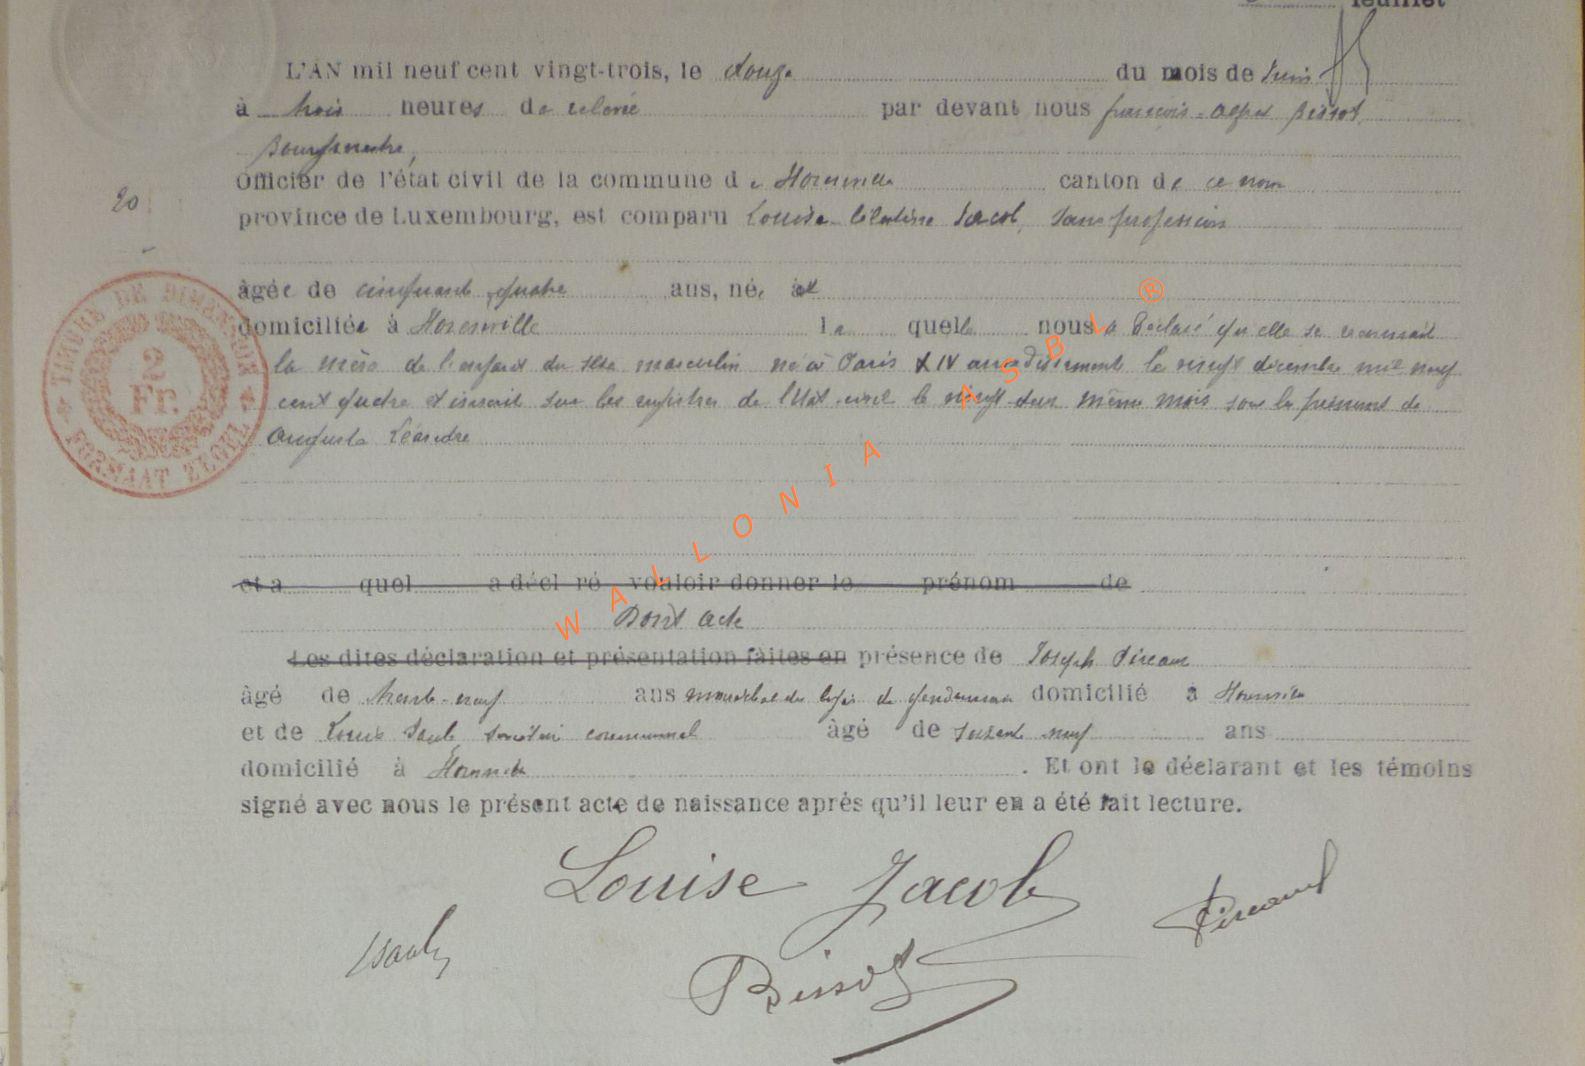 feuillet
L'AN mil neuf cent vingt-trois, le douze du mois de Juin
à trois heures de relevée par devant nous françois-Bissot
Bourgmestre,
Officier de l'état civil de la commune de Houmville canton de ce nom
20
province de Luxembourg, est comparu Louise Célestine Jacob, sans profession
âgée de cinquante quatre ans, née à et
domiciliée à Houmville laquelle nous a déclaré qu'elle se reconnait
la mère de l'enfant du sexe masculin né à Paris XIV arrondissement le neuf décembre mil neuf
cent quatre et inscrit sur les registres de l'état-civil le même mois sous les prénoms de
Auguste Léandre
et a quel a décl ré vouloir donner le prénom de
Dont acte
Les dites déclaration et présentation faites en présence de Joseph Pireaux
âgé de trente-neuf ans maréchal des logis de gendarmerie domicilié à
et de Louis secrétaire communal âgé de soixante neuf ans
domicilié à . Et ont le déclarant et les témoins
signé avec nous le présent acte de naissance après qu'il leur en a été fait lecture.
Louise Jacob
Bissot
TIMBRE DE DIMENSION
2
Fr.
FORMAAT ZEGEL
WALLONIA ASBL ®